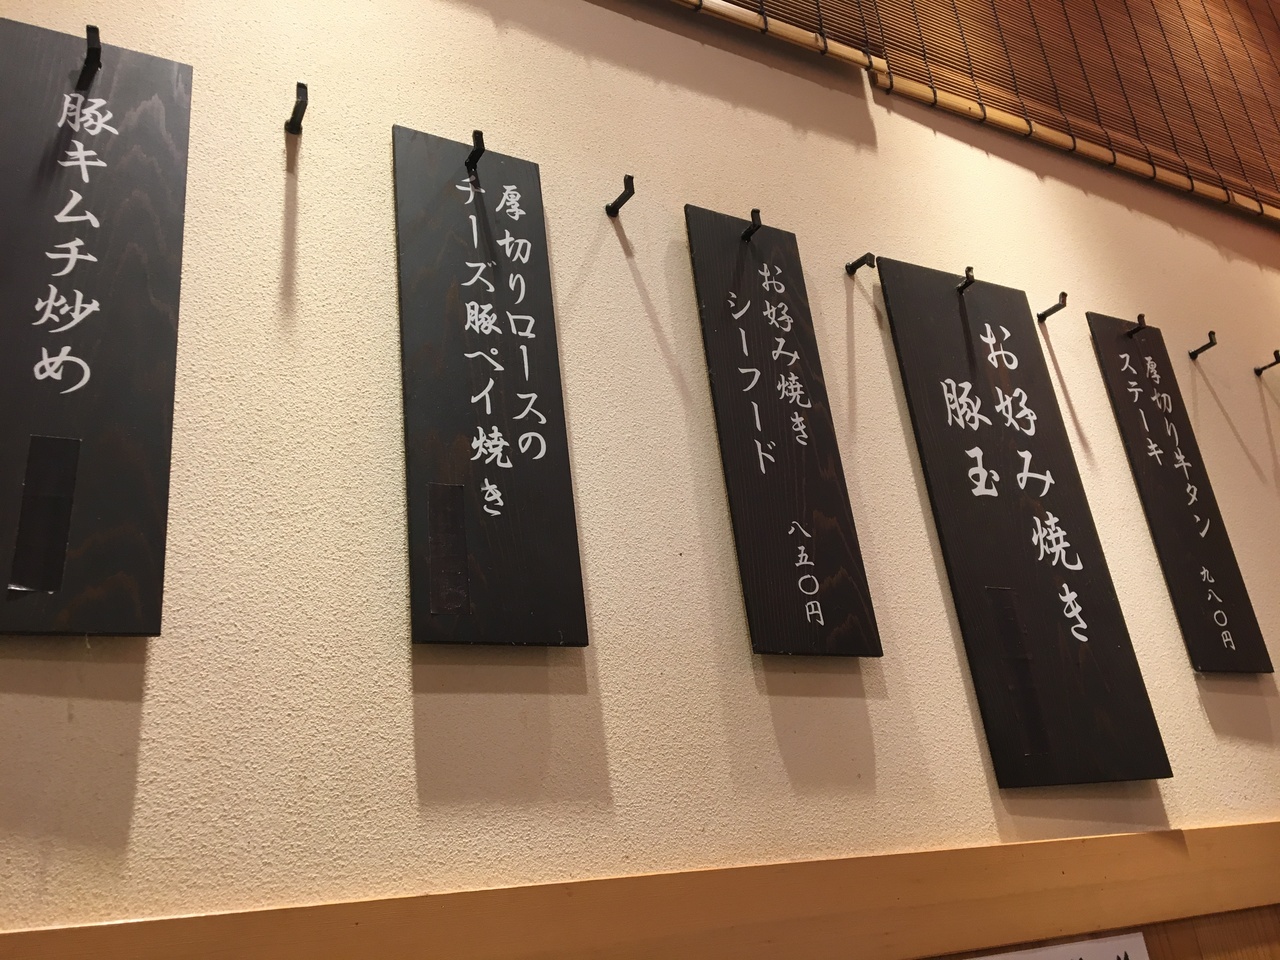 豚キムチ炒め
厚切りロースの
チーズ豚ペイ焼き
お好み焼き
シーフード
八五〇円
お好み焼き
豚玉
厚切り牛タン
ステーキ
九八〇円